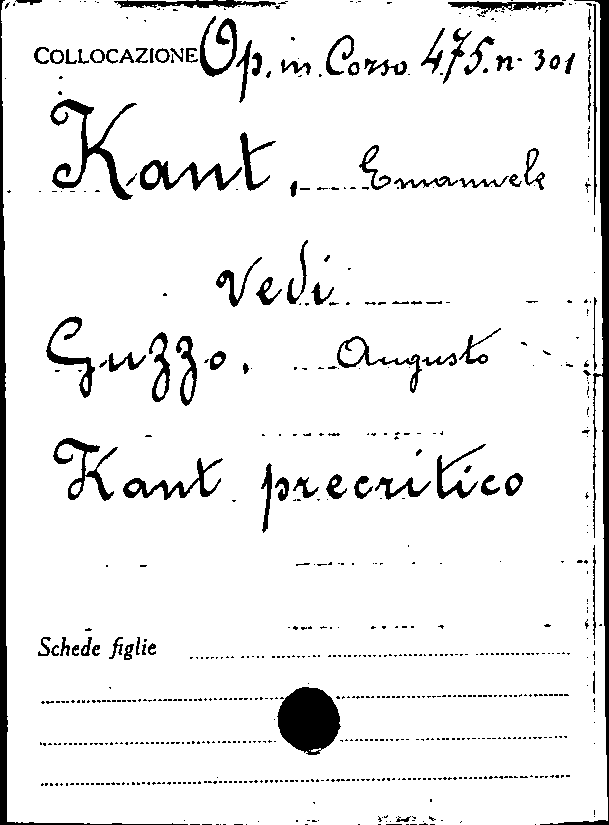 COLLOCAZIONE Op. in Corso 475. n. 301
Kant, Emanuele
Vedi
Guzzo, Augusto
Kant precritico
Schede figlie